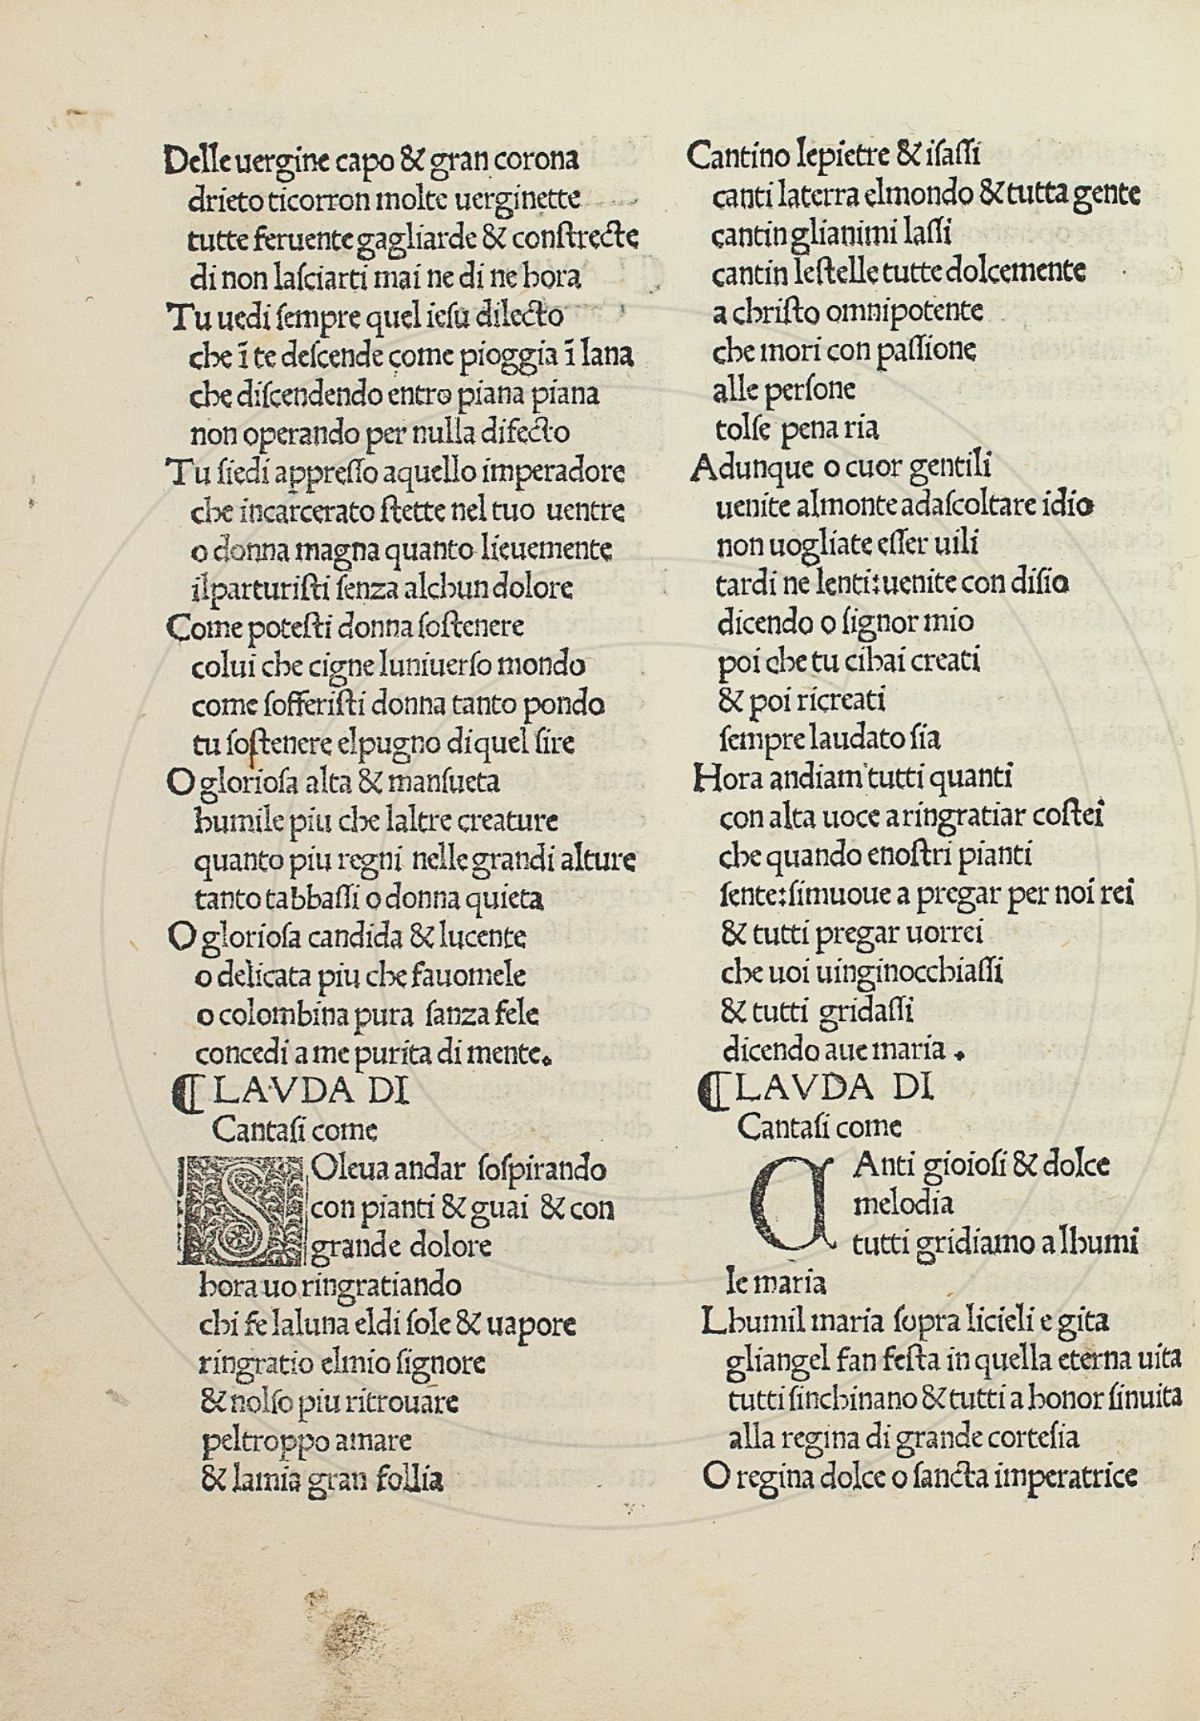 Delle uergine capo & gran corona
drieto ticorron molte uerginette
tutte feruente gagliarde & constrecte
di non lasciarti mai ne di ne hora
Tu uedi sempre quel iesu dilecto
che ī te descende come pioggia ī lana
che discendendo entro piana piana
non operando per nulla difecto
Tu siedi appresso aquello imperadore
che incarcerato stette nel tuo uentre
o donna magna quanto lieuemente
ilparturisti senza alchun dolore
Come potesti donna sostenere
colui che cigne luniuerso mondo
come sofferisti donna tanto pondo
tu sostenere elpugno diquel sire
O gloriosa alta & mansueta
humile piu che laltre creature
quanto piu regni nelle grandi alture
tanto tabbassi o donna quieta
O gloriosa candida & lucente
o delicata piu che fauomele
o colombina pura sanza fele
concedi a me purita di mente.
¶ LAVDA DI
Cantasi come
SOleua andar sospirando
con pianti & guai & con
grande dolore
hora uo ringratiando
chi fe laluna eldi sole & uapore
ringratio elmio signore
& nolso piu ritrouare
peltroppo amare
& lamia gran follia
Cantino lepietre & isassi
canti laterra elmondo & tutta gente
cantin glianimi lassi
cantin lestelle tutte dolcemente
a christo omnipotente
che mori con passione
alle persone
tolse pena ria
Adunque o cuor gentili
uenite almonte adascoltare idio
non uogliate esser uili
tardi ne lenti:uenite con disio
dicendo o signor mio
poi che tu cihai creati
& poi ricreati
sempre laudato sia
Hora andiam tutti quanti
con alta uoce a ringratiar costei
che quando enostri pianti
sente:simuoue a pregar per noi rei
& tutti pregar uorrei
che uoi uinginocchiassi
& tutti gridassi
dicendo aue maria .
¶ LAVDA DI
Cantasi come
CAnti gioiosi & dolce
melodia
tutti gridiamo a lhumi
le maria
Lhumil maria sopra licieli e gita
gliangel fan festa in quella eterna uita
tutti sinchinano & tutti a honor sinuita
alla regina di grande cortesia
O regina dolce o sancta imperatrice